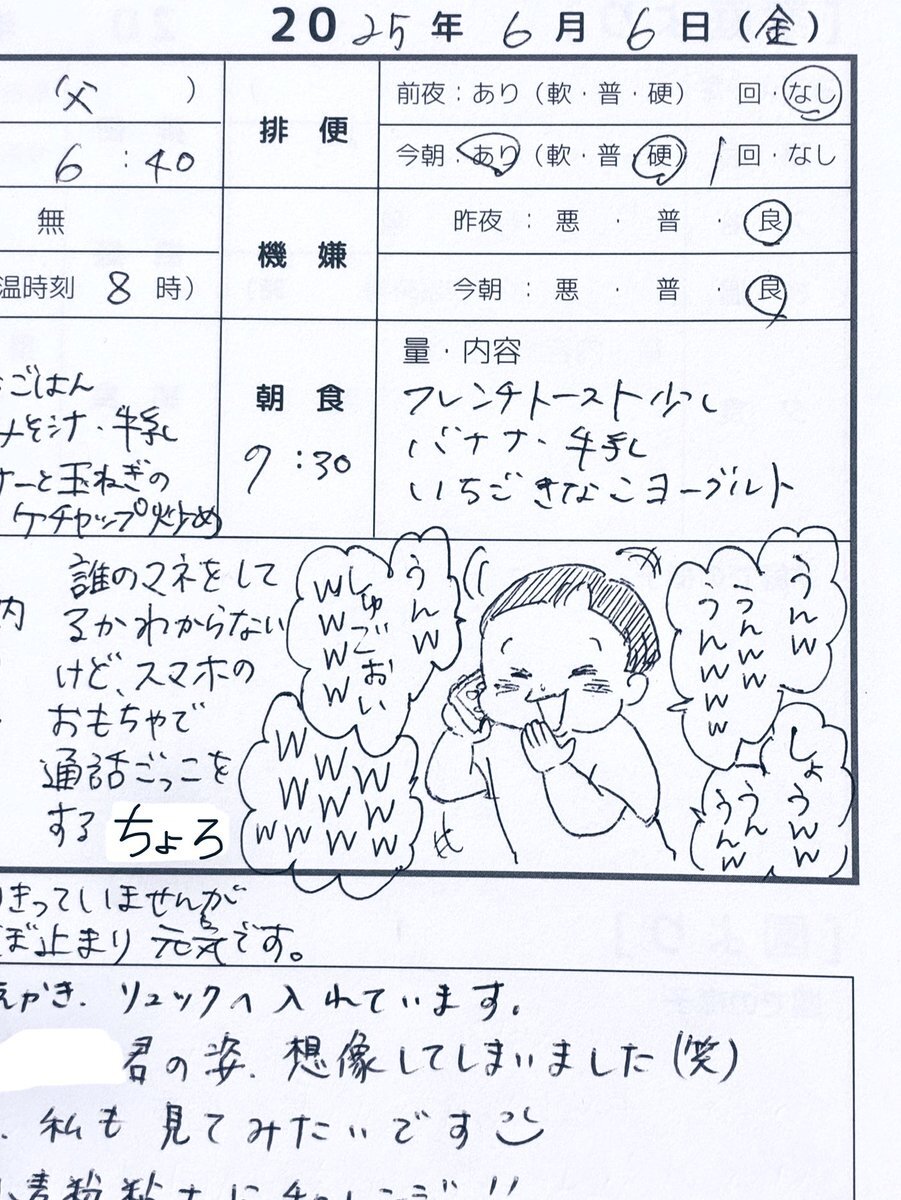 2025年 6月 6日 (金)
父 )
6 : 40
無
温時刻 8 時)
ごはん
みそ汁・牛乳
ーと玉ねぎの
ケチャップ炒め
排 便
前夜:あり(軟・普・硬) 回・なし
今朝:あり(軟・普・硬) 1回・なし
機 嫌
昨夜 : 悪 ・ 普 ・ 良
今朝 : 悪 ・ 普 ・ 良
朝 食
7:30
量・内容
フレンチトースト少し
バナナ・牛乳
いちごきなこヨーグルト
内
誰のマネをして
るかわからない
けど、スマホの
おもちゃで
通話ごっこを
する ちょろ
うんw
しゅごおい
wwww
wwwwwwwwww
うんw
うんww
うんwww
しょうww
うん
うんw
きっていませんが
ぼ止まり 元気です。
えかき、リュックへ入れています。
君の姿、想像してしまいました(笑)
、私も見てみたいです